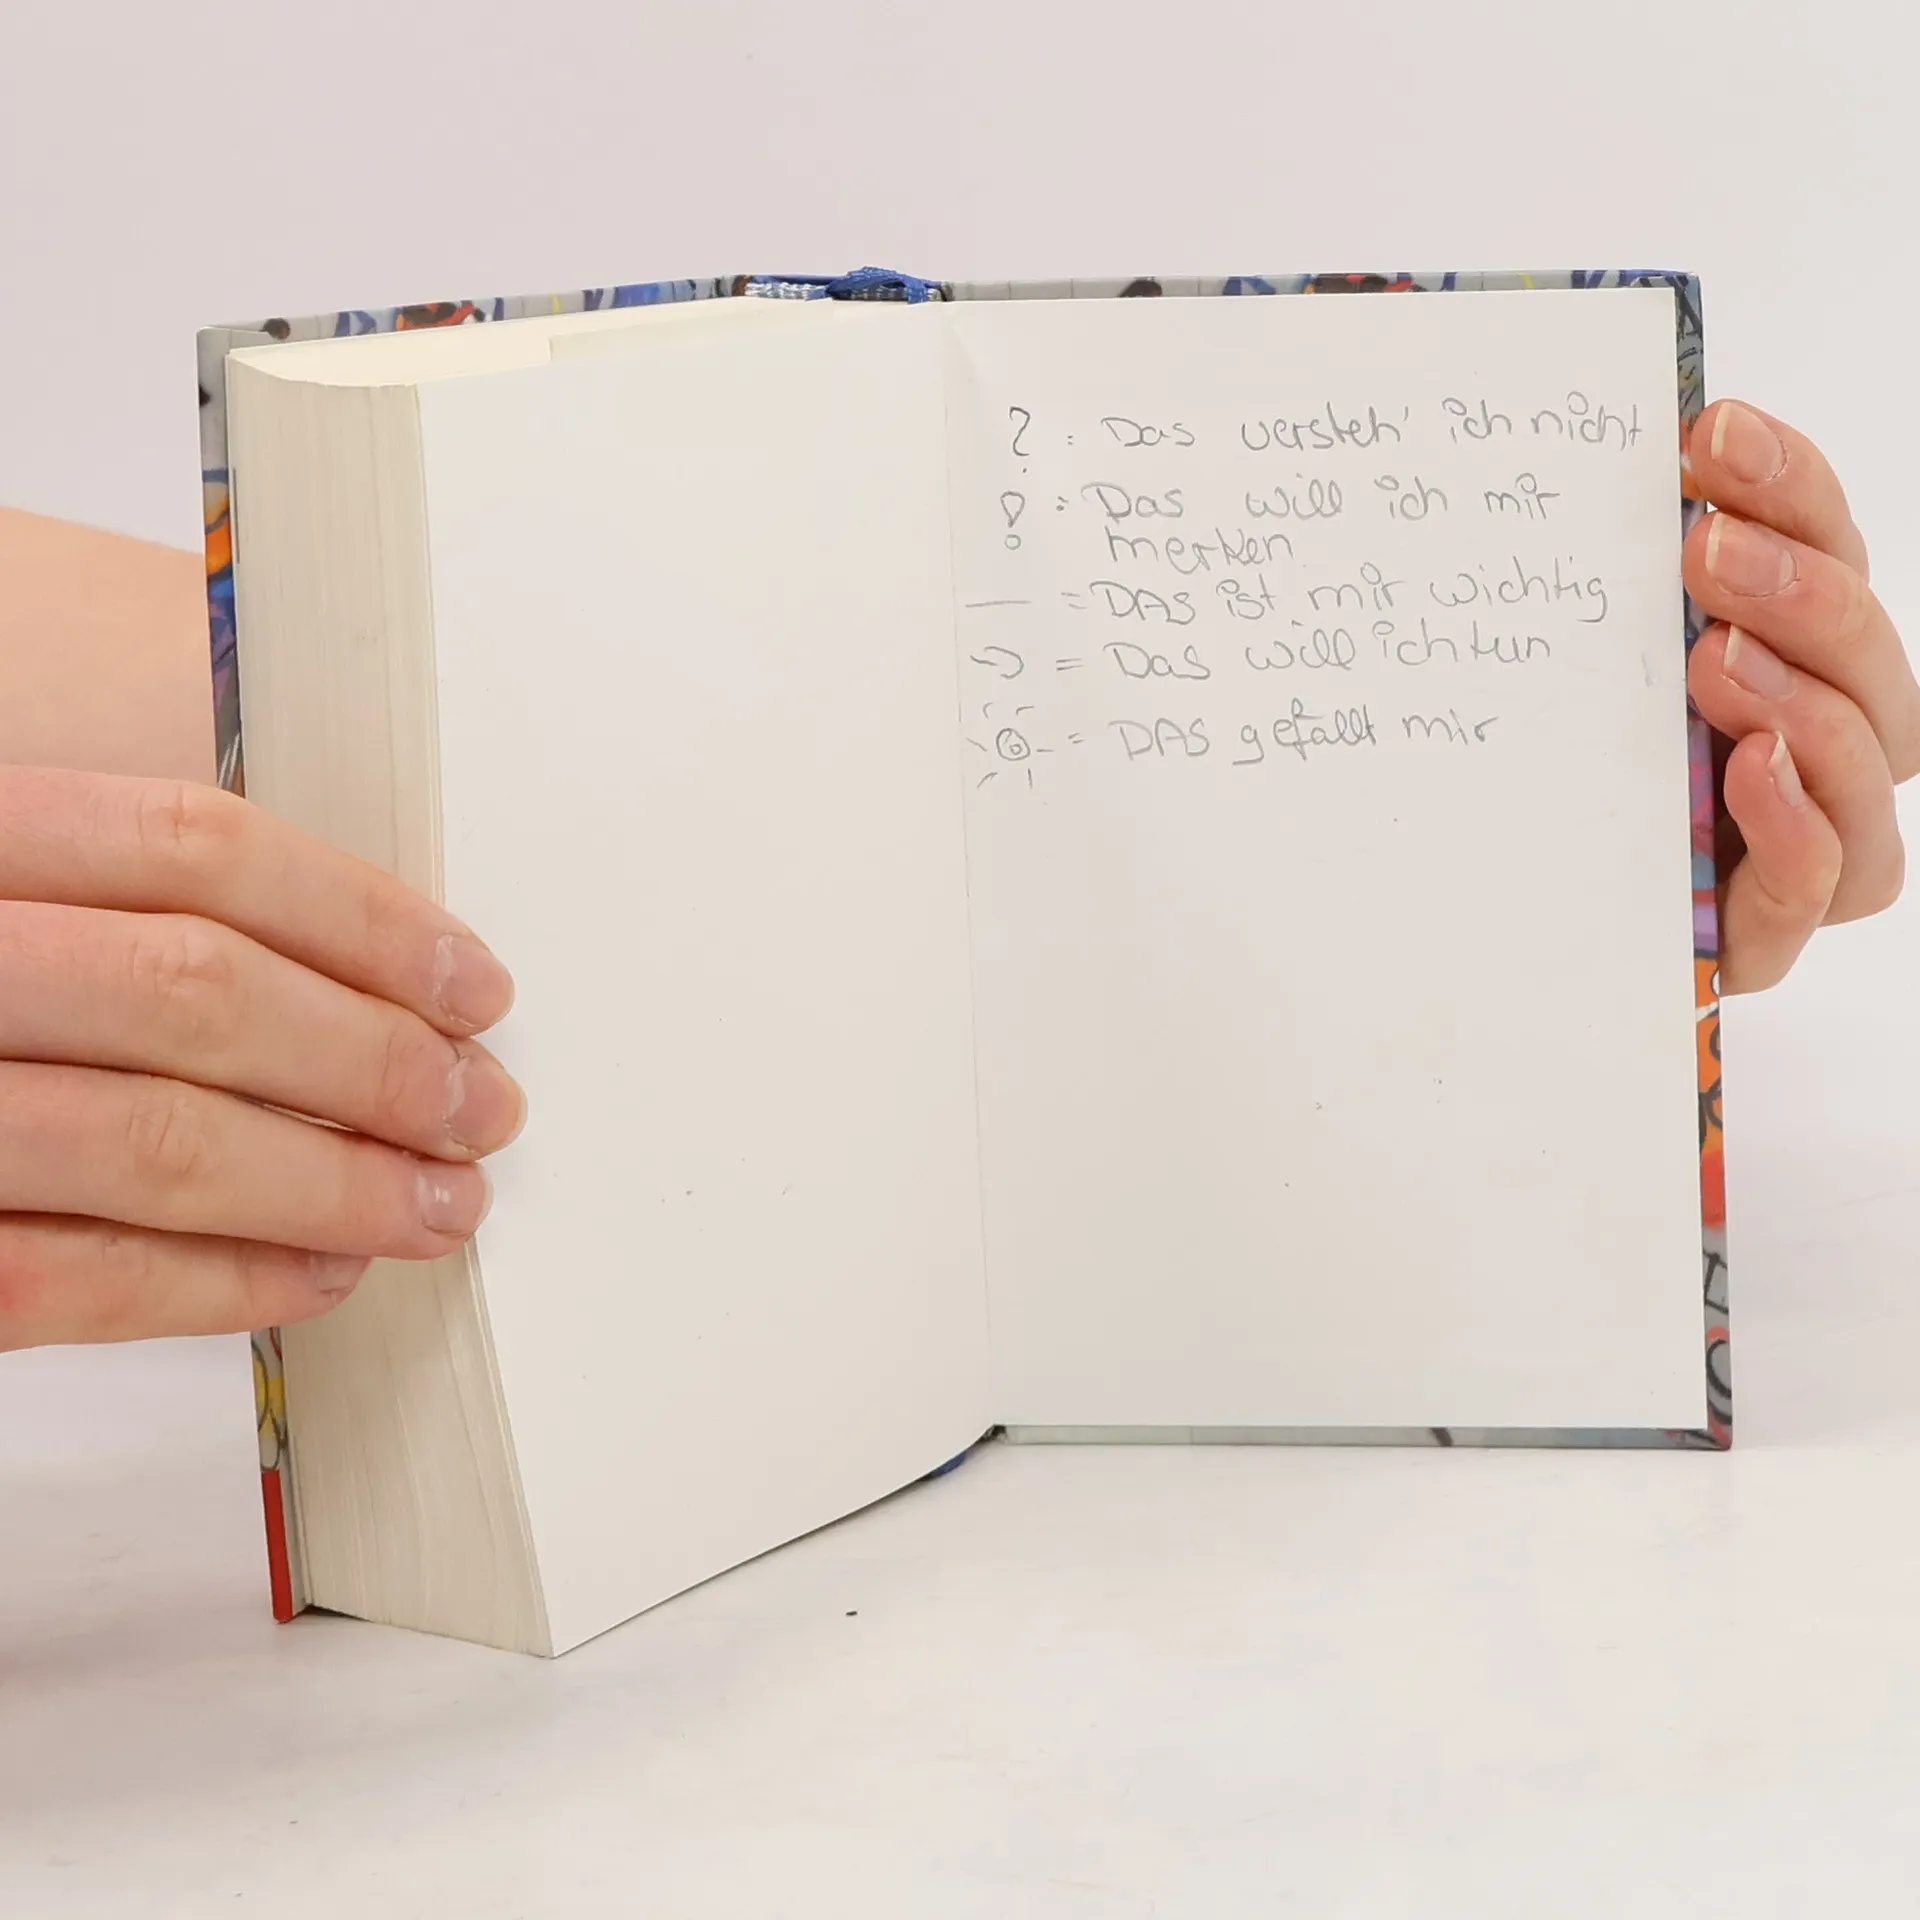 ? : Das versteh' ich nicht
! : Das will ich mir
merken
— = DAS ist mir wichtig
→ = Das will ich tun
☼ = DAS gefällt mir